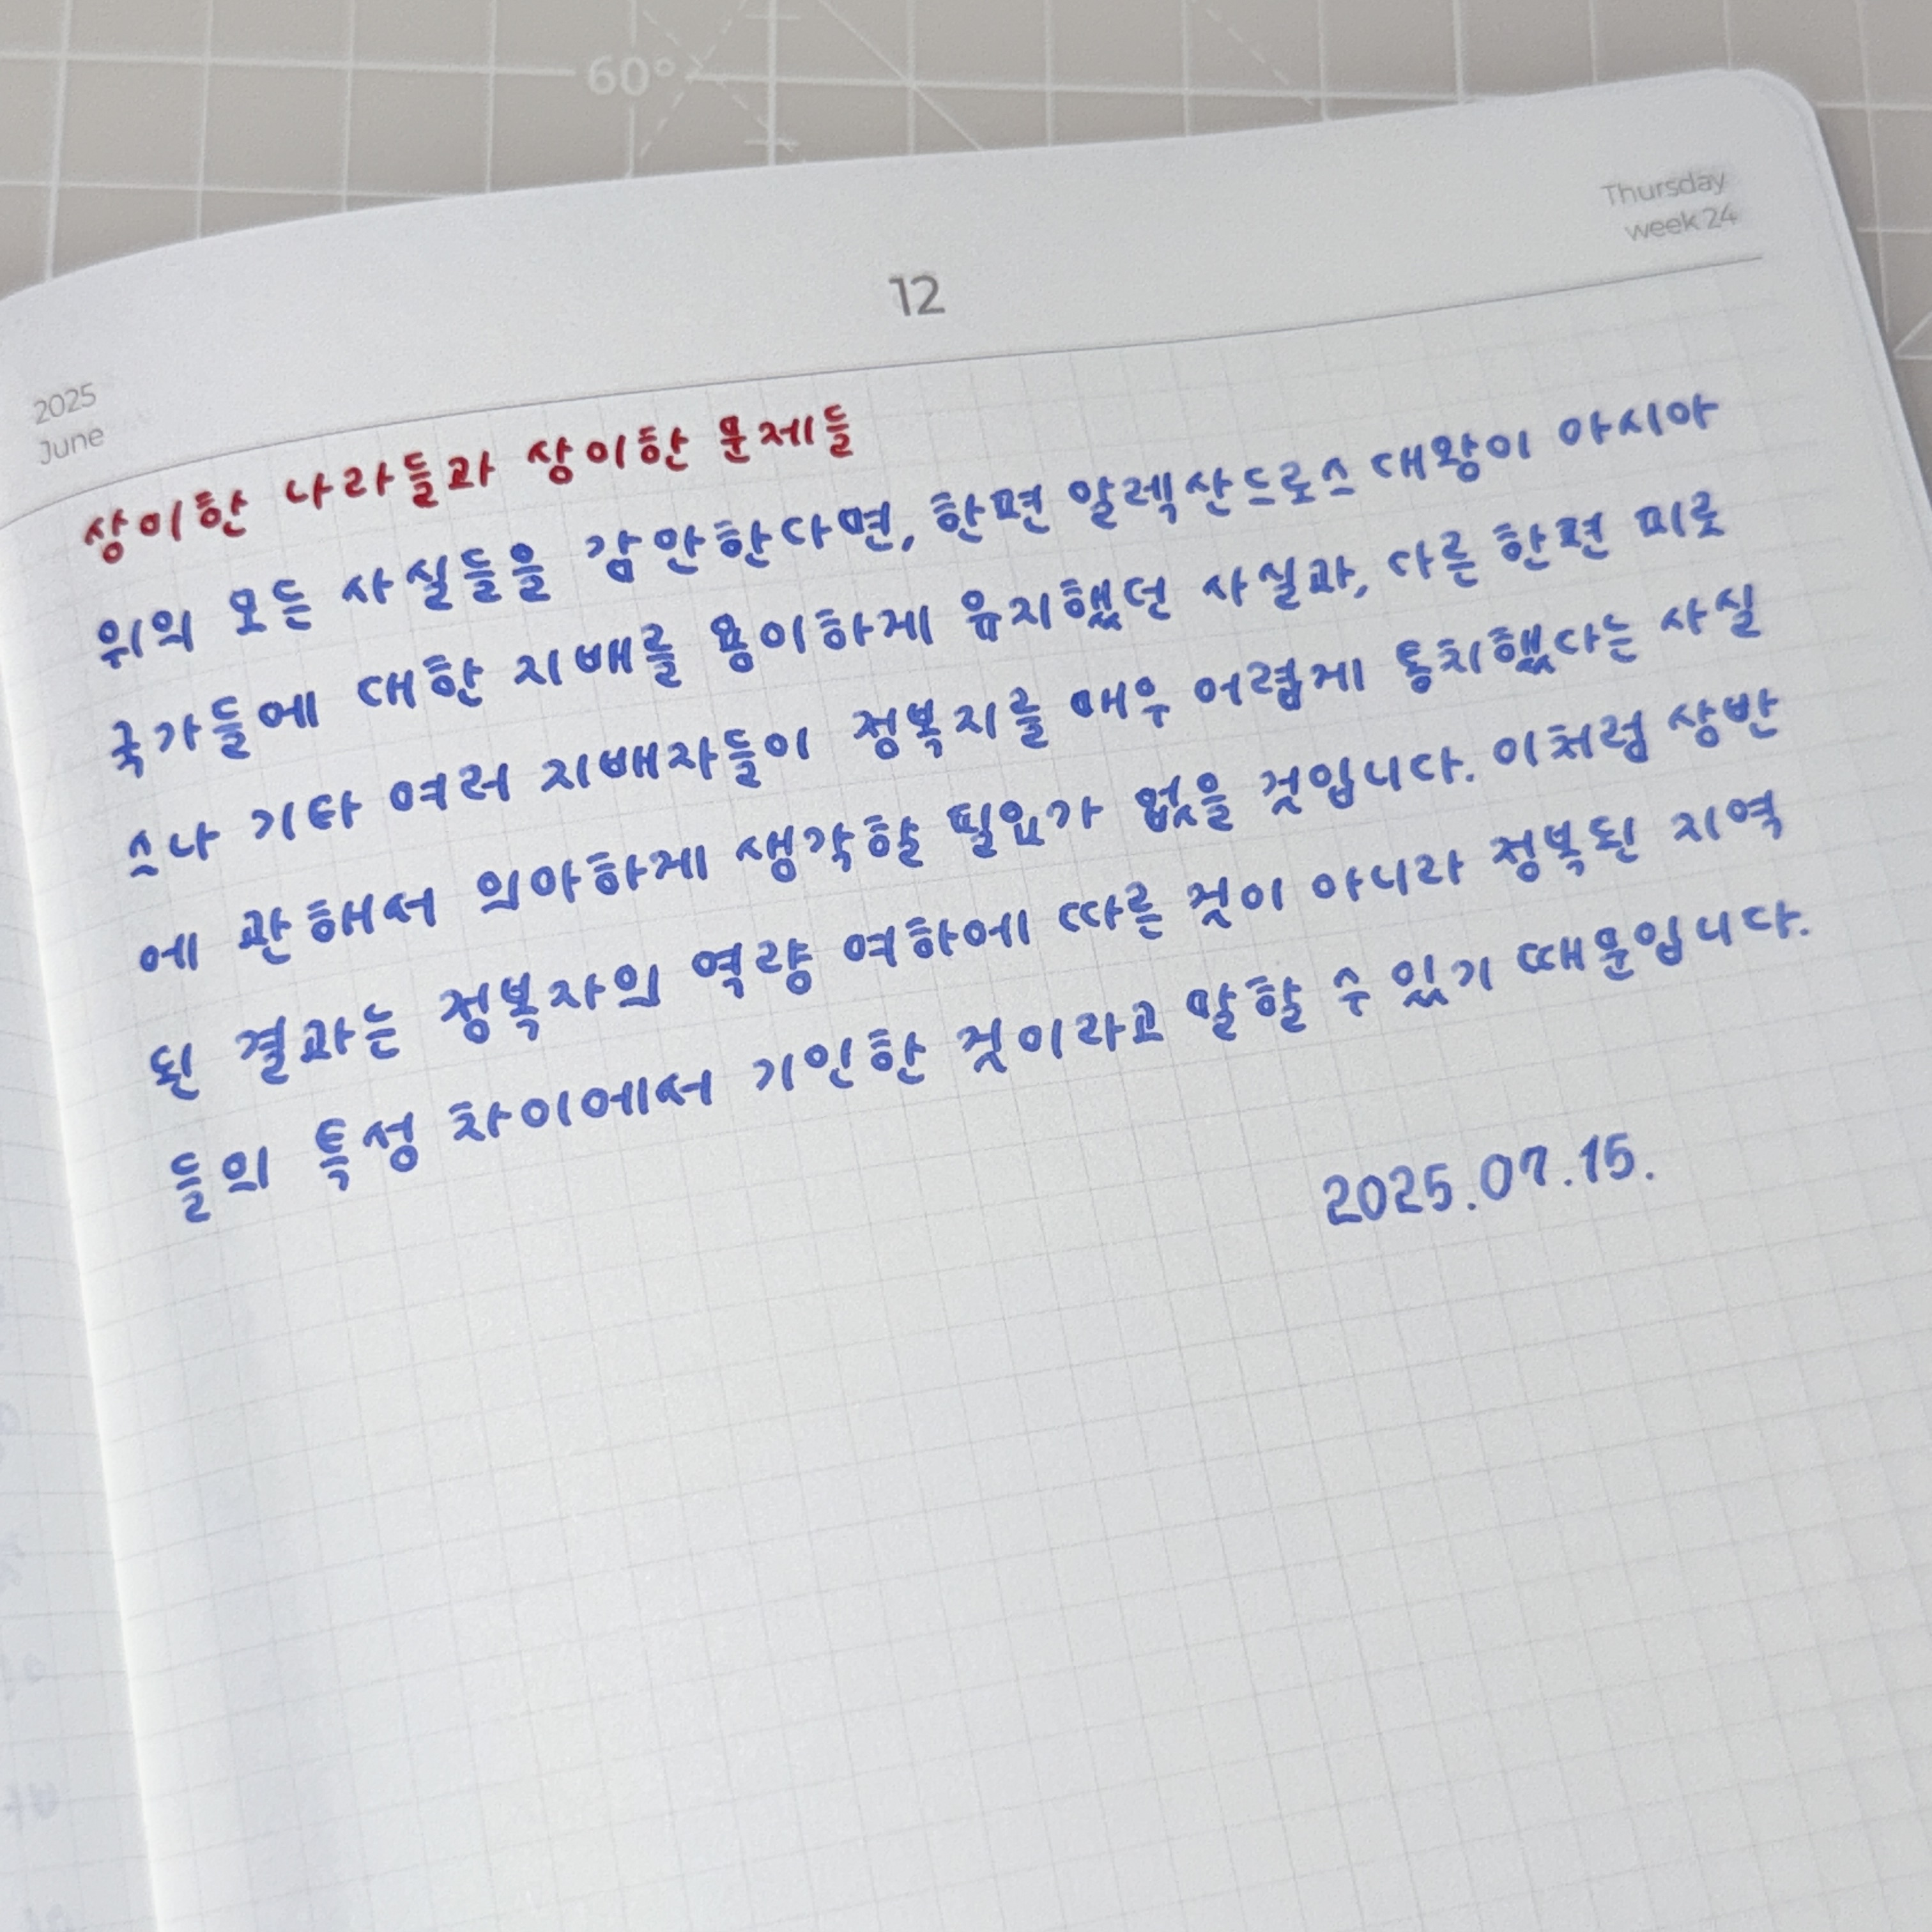 60°
Thursday
week 24
12
2025
June
상이한 나라들과 상이한 문제들
위의 모든 사실들을 감안한다면, 한편 알렉산드로스 대왕이 아시아
국가들에 대한 지배를 용이하게 유지했던 사실과, 다른 한편 피로
스나 기타 여러 지배자들이 정복지를 매우 어렵게 통치했다는 사실
에 관해서 의아하게 생각할 필요가 없을 것입니다. 이처럼 상반
된 결과는 정복자의 역량 여하에 따른 것이 아니라 정복된 지역
들의 특성 차이에서 기인한 것이라고 말할 수 있기 때문입니다.
2025.07.15.